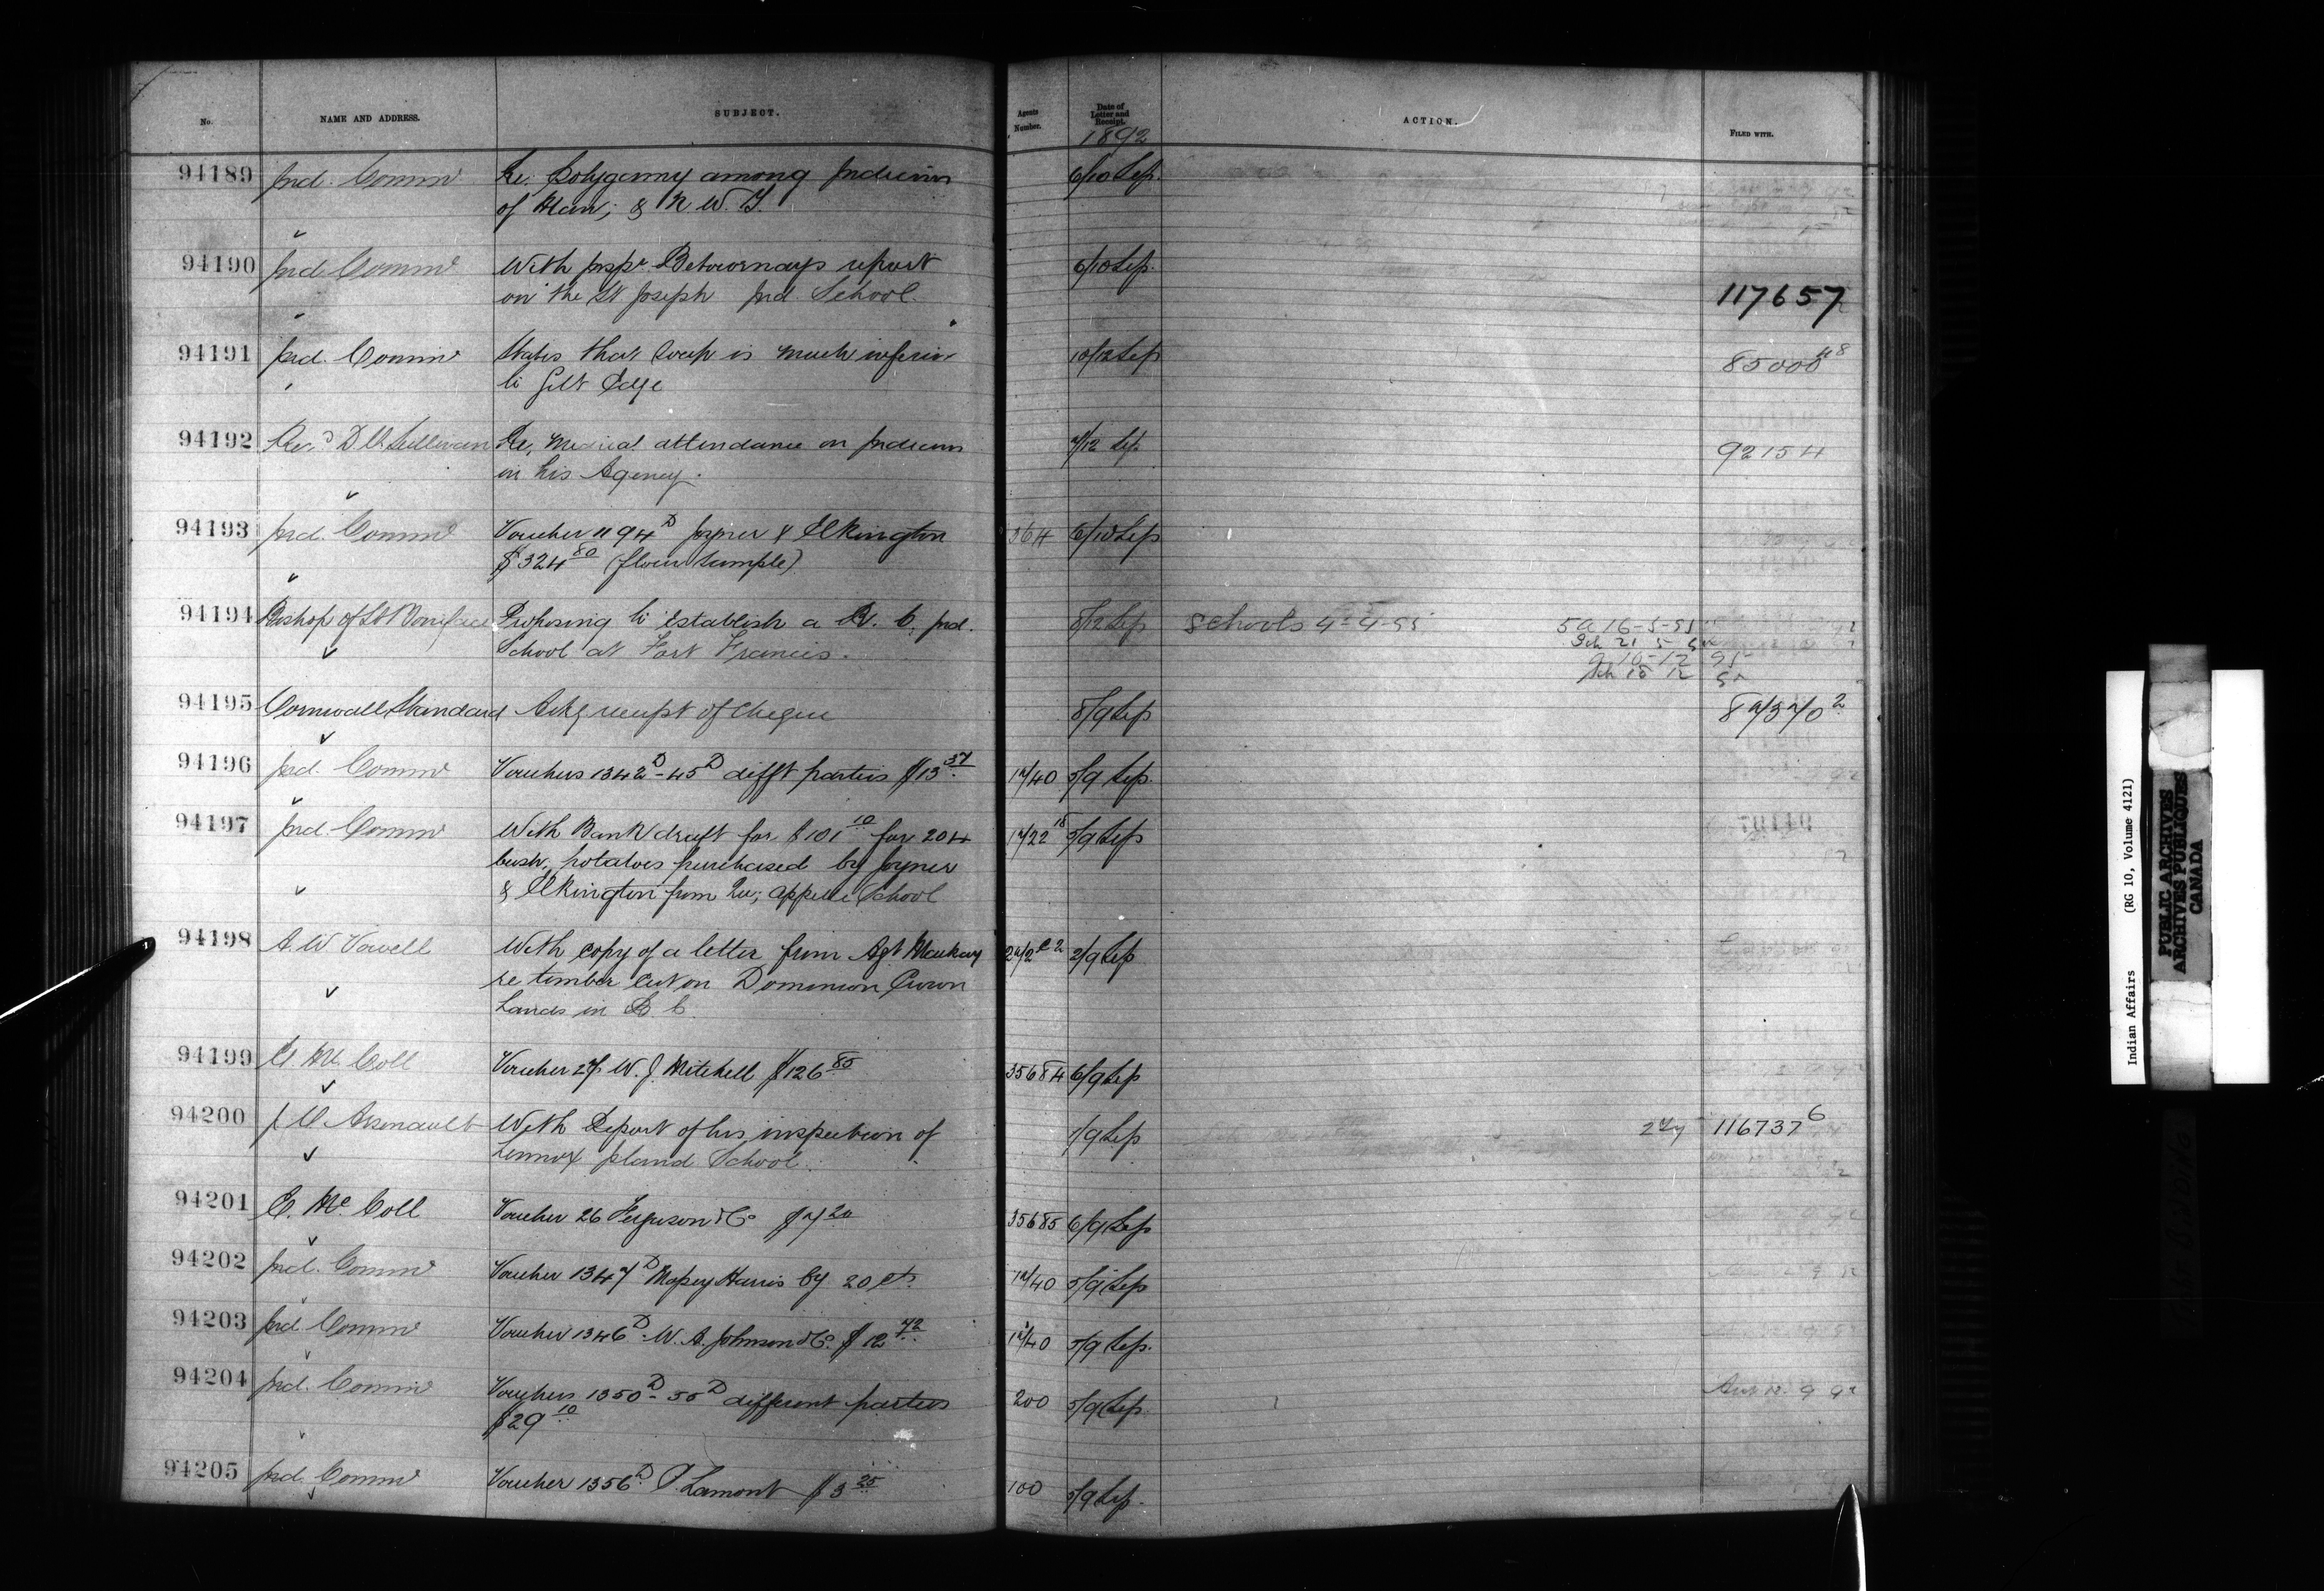 No. NAME AND ADDRESS. SUBJECT. Agents Number. Date of Letter and Receipt. ACTION. FILED WITH.
1892
94189 Ind. Commr Re, Polygamy among Indians 6/10 Sep.
of Man; & N. W. T.
94190 Ind. Commr With Inspr Betournays report 6/10 Sep.
on the St Joseph Ind. School. 117657
94191 Ind. Commr States that Soap is much inferior 10/12 Sep 85000
to Gilt Edge
94192 Revd D. O. Sullivan Re, Medical attendance on Indians 7/12 Sep. 92154
in his Agency.
94193 Ind. Commr Voucher 1194D Joyner & Elkington 364 6/10 Sep
$324 80 (flour sample)
94194 Bishop of St Boniface Proposing to establish a R. C. Ind. 8/12 Sep Schools 4-4-95 16-5-95
School at Fort Francis.
94195 Cornwall Standard Ackg receipt of cheque 8/9 Sep 87370 2
94196 Ind. Commr Vouchers 1342D-45D difft parties $13 37 17/40 5/9 Sep.
94197 Ind. Commr With Bank draft for $101 10 for 204 17/22 18 5/9 Sep
bush, potatoes purchased by Joyner
& Elkington from Qu; appelle School
94198 A. W. Vowell With copy of a letter from Agt Mackay 2/9 Sep
re timber cut on Dominion Crown
Lands in B. C.
94199 E. Mc Coll Voucher 27 W. J. Mitchell $126 85 35684 6/9 Sep
94200 J. O. Arsenault With Report of his inspection of 1/9 Sep 116737 6
Lennox Island School.
94201 E. Mc Coll Voucher 26 Ferguson & Co $7 20 35685 6/9 Sep
94202 Ind. Commr Voucher 1347D Massey Harris Cy 20 cts. 17/40 5/9 Sep
94203 Ind. Commr Voucher 1346D W. A. Johnson & Co. $12 72 17/40 5/9 Sep.
94204 Ind. Commr Vouchers 1350D-55D different parties 200 5/9 Sep.
$29 10
94205 Ind. Commr Voucher 1356D P. Lamont $3 25 100 5/9 Sep.
Indian Affairs (RG 10, Volume 4121)
PUBLIC ARCHIVES
ARCHIVES PUBLIQUES
CANADA